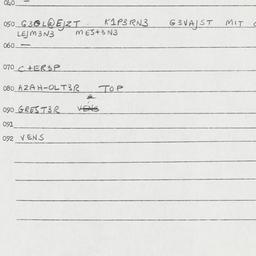 040 —
050 G3OL@EJZT K1P3RN3 G3VAJST MIT
LEJM3N3 MEST3N3
060 —
070 C+ER3P
080 AZAH-OLT3R TOP
090 GREJT3R VENS
091
092 VENS